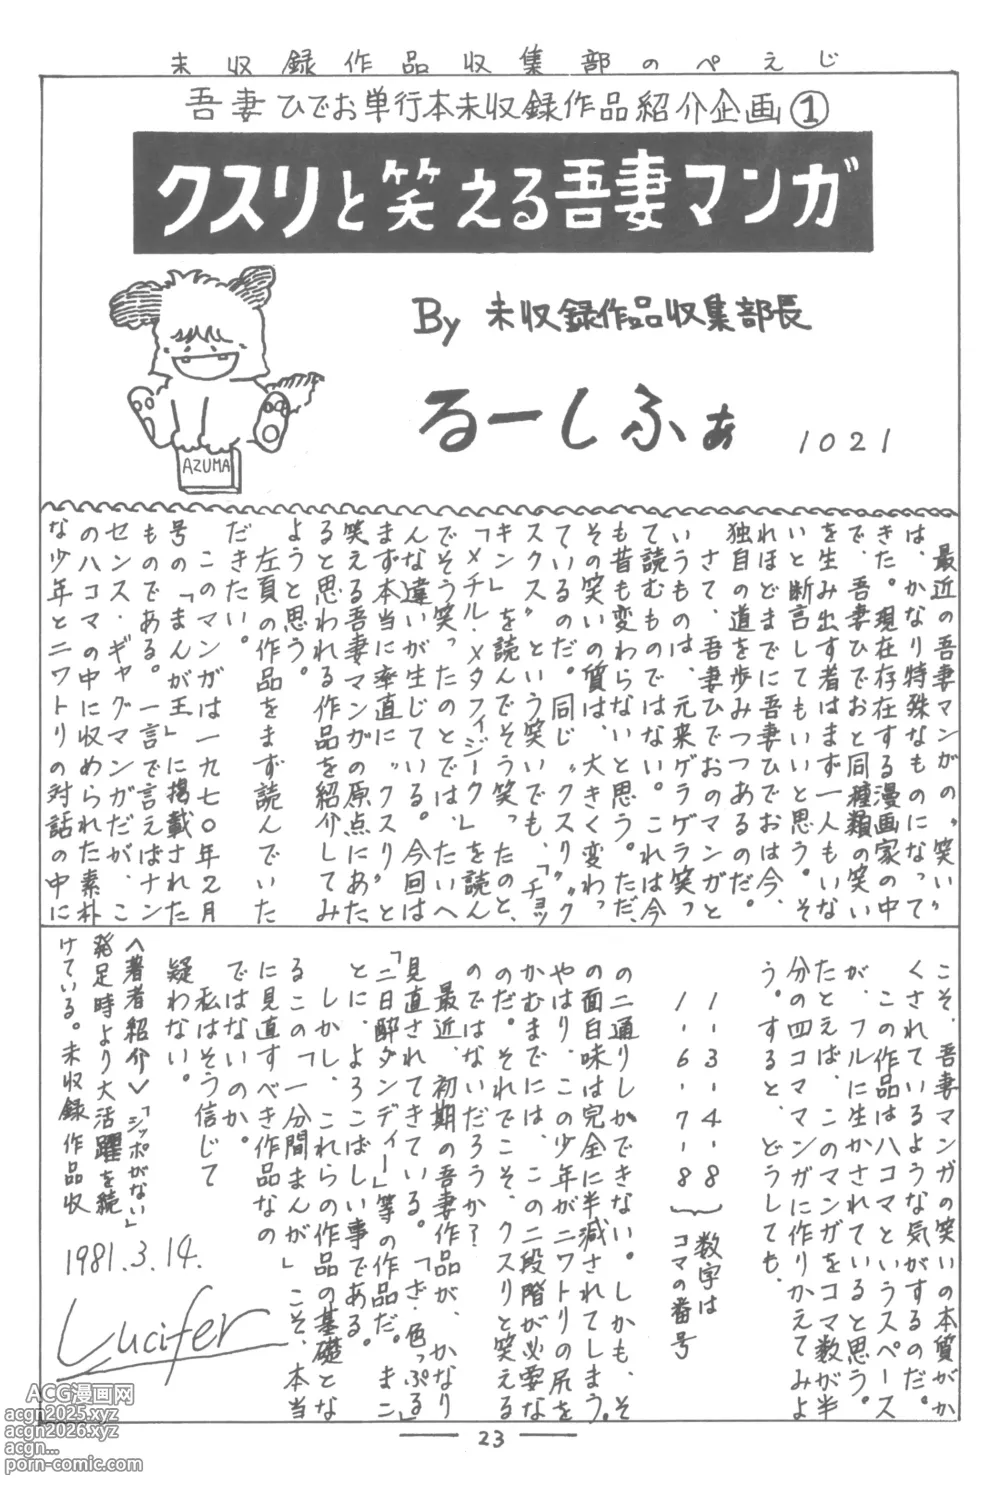 未収録作品収集部のぺえじ
吾妻ひでお単行本未収録作品紹介企画①
クスリと笑える吾妻マンガ
By 未収録作品収集部長
るーしふぁ 1021
AZUMA
最近の吾妻マンガの〝笑い〟
は、かなり特殊なものになって
きた。現在存在する漫画家の中
で、吾妻ひでおと同種類の笑い
を生み出す者はまず一人もいな
いと断言してもいいと思う。そ
れほどまでに吾妻ひでおは今、
独自の道を歩みつつあるのだ。
さて、吾妻ひでおのマンガと
いうものは、元来ゲラゲラ笑っ
て読むものではない。これは今
も昔も変わらないと思う。ただ、
その笑いの質は、大きく変わっ
ているのだ。同じ〝クスリ〟〝ク
スクス〟という笑いでも、「チョッ
キン」を読んでそう笑ったのと、
「メチル・メタフィジーク」を読ん
でそう笑ったのとでは、たいへ
んな違いが生じている。今回は
まず本当に率直に〝クスリ〟と
笑える吾妻マンガの原点にあた
ると思われる作品を紹介してみ
ようと思う。
左頁の作品をまず読んでいた
だきたい。
このマンガは一九七〇年2月
号の「まんが王」に掲載された
ものである。一言で言えばナン
センス・ギャグマンガだが、こ
のハコマの中に収められた素朴
な少年とニワトリの対話の中に
こそ、吾妻マンガの笑いの本質がか
くされているような気がするのだ。
この作品はハコマというスペース
が、フルに生かされていると思う。
たとえば、このマンガをコマ数が半
分の四コママンガに作りかえてみよ
う。すると、どうしても、
1-3-4-8
1-6-7-8
数字は
コマの番号
の二通りしかできない。しかも、そ
の面白味は完全に半減されてしまう。
やはり、この少年がニワトリの尻を
かむまでには、この二段階が必要な
のだ。それでこそ、クスリと笑える
のではないだろうか?
最近、初期の吾妻作品が、かなり
見直されてきている。「ざ・色っぷる」
「二日酔ダンディー」等の作品だ。まこ
とに、よろこばしい事である。
しかし、これらの作品の基礎とな
るこの「一分間まんが」こそ、本当
に見直すべき作品なの
ではないのか。
私はそう信じて
疑わない。
〈著者紹介〉「シッポがない」
発足時より大活躍を続
けている。未収録作品収
1981.3.14.
Lucifer
23
ACG漫画网
acgn2025.xyz
acgn2026.xyz
acgn...
porn-comic.com